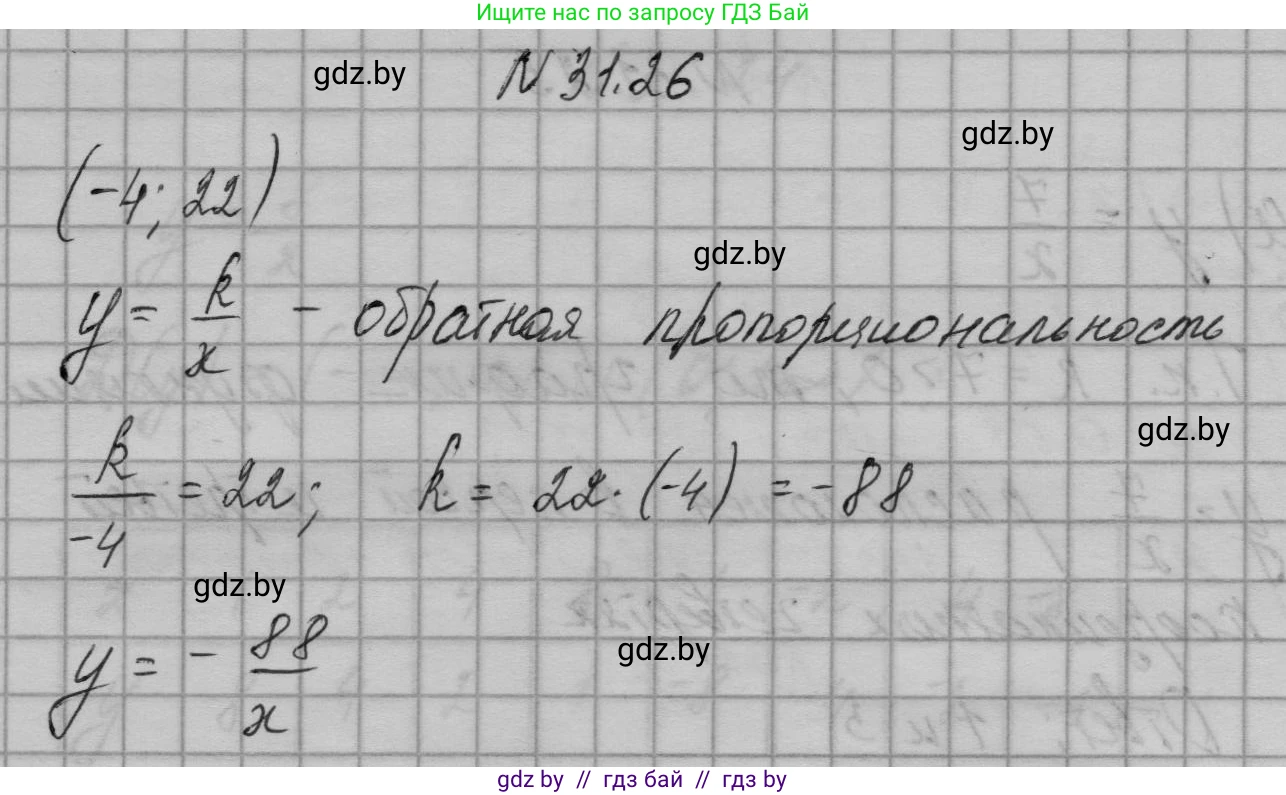 Ищите нас по запросу ГДЗ Бай
gdz.by
N 31.26
gdz.by
(-4; 22)
gdz.by
y = k/x - обратная пропорциональность
gdz.by
k/-4 = 22; k = 22 · (-4) = -88
gdz.by
gdz.by
y = - 88/x
gdz by // гдз бай // гдз by